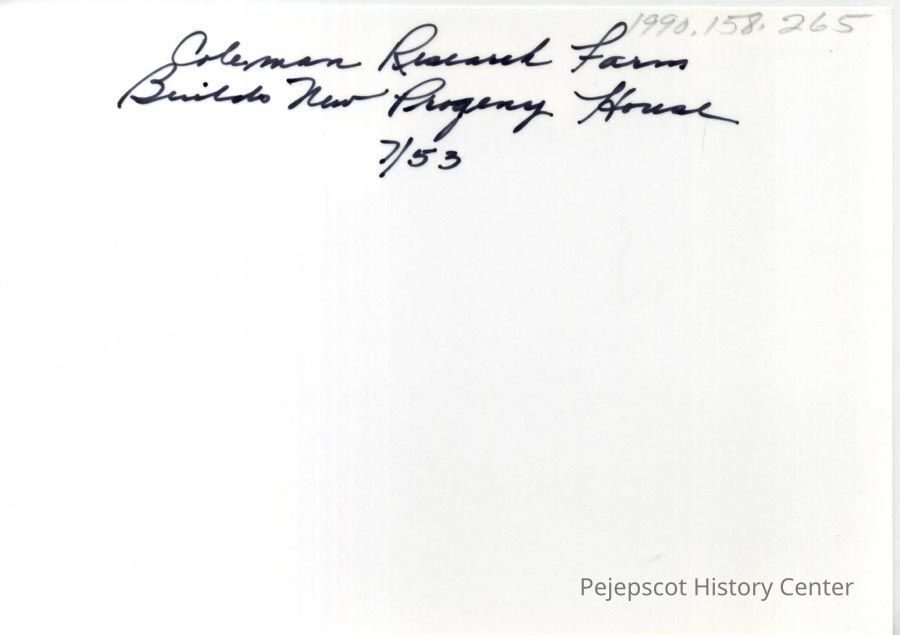 1990.158.265
Coleman Research Farm
Builds New Progeny House
7/53
Pejepscot History Center